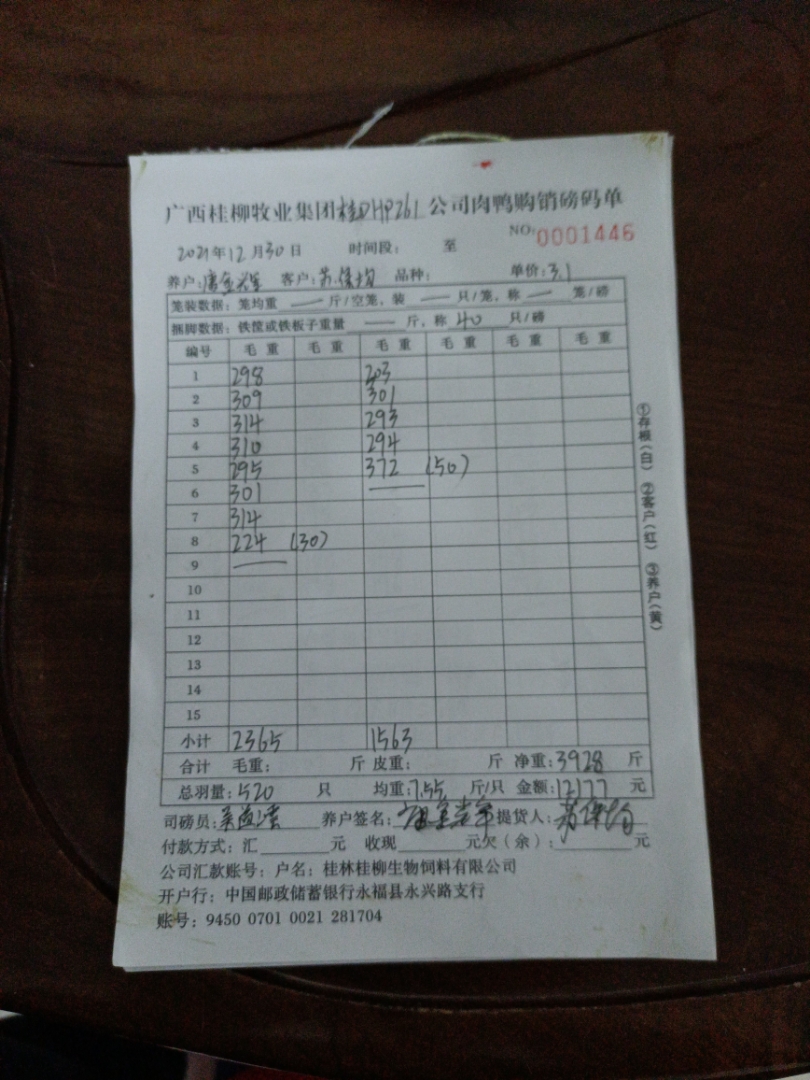 广西桂柳牧业集团桂DHP261公司肉鸭购销磅码单
NO:0001446
2021年12月30日 时间段: 至
养户: 客户:苏保均 品种: 单价:3.1
笼装数据:笼均重 — 斤/空笼,装 — 只/笼,称 — 笼/磅
捆脚数据:铁筐或铁板子重量 — 斤,称 40 只/磅
编号 毛重 毛重 毛重 毛重 毛重 毛重
1 298 203
2 309 301
3 314 293
4 310 294
5 295 372 (50)
6 301
7 314
8 224 (30)
9
10
11
12
13
14
15
小计 2365 1563
合计 毛重: 斤 皮重: 斤 净重:3928 斤
总羽量:520 只 均重:7.55 斤/只 金额:12177 元
司磅员: 养户签名: 提货人:苏保均
付款方式:汇 元 收现 元欠(余): 元
公司汇款账号:户名:桂林桂柳生物饲料有限公司
开户行:中国邮政储蓄银行永福县永兴路支行
账号:9450 0701 0021 281704
①存根(白) ②客户(红) ③养户(黄)